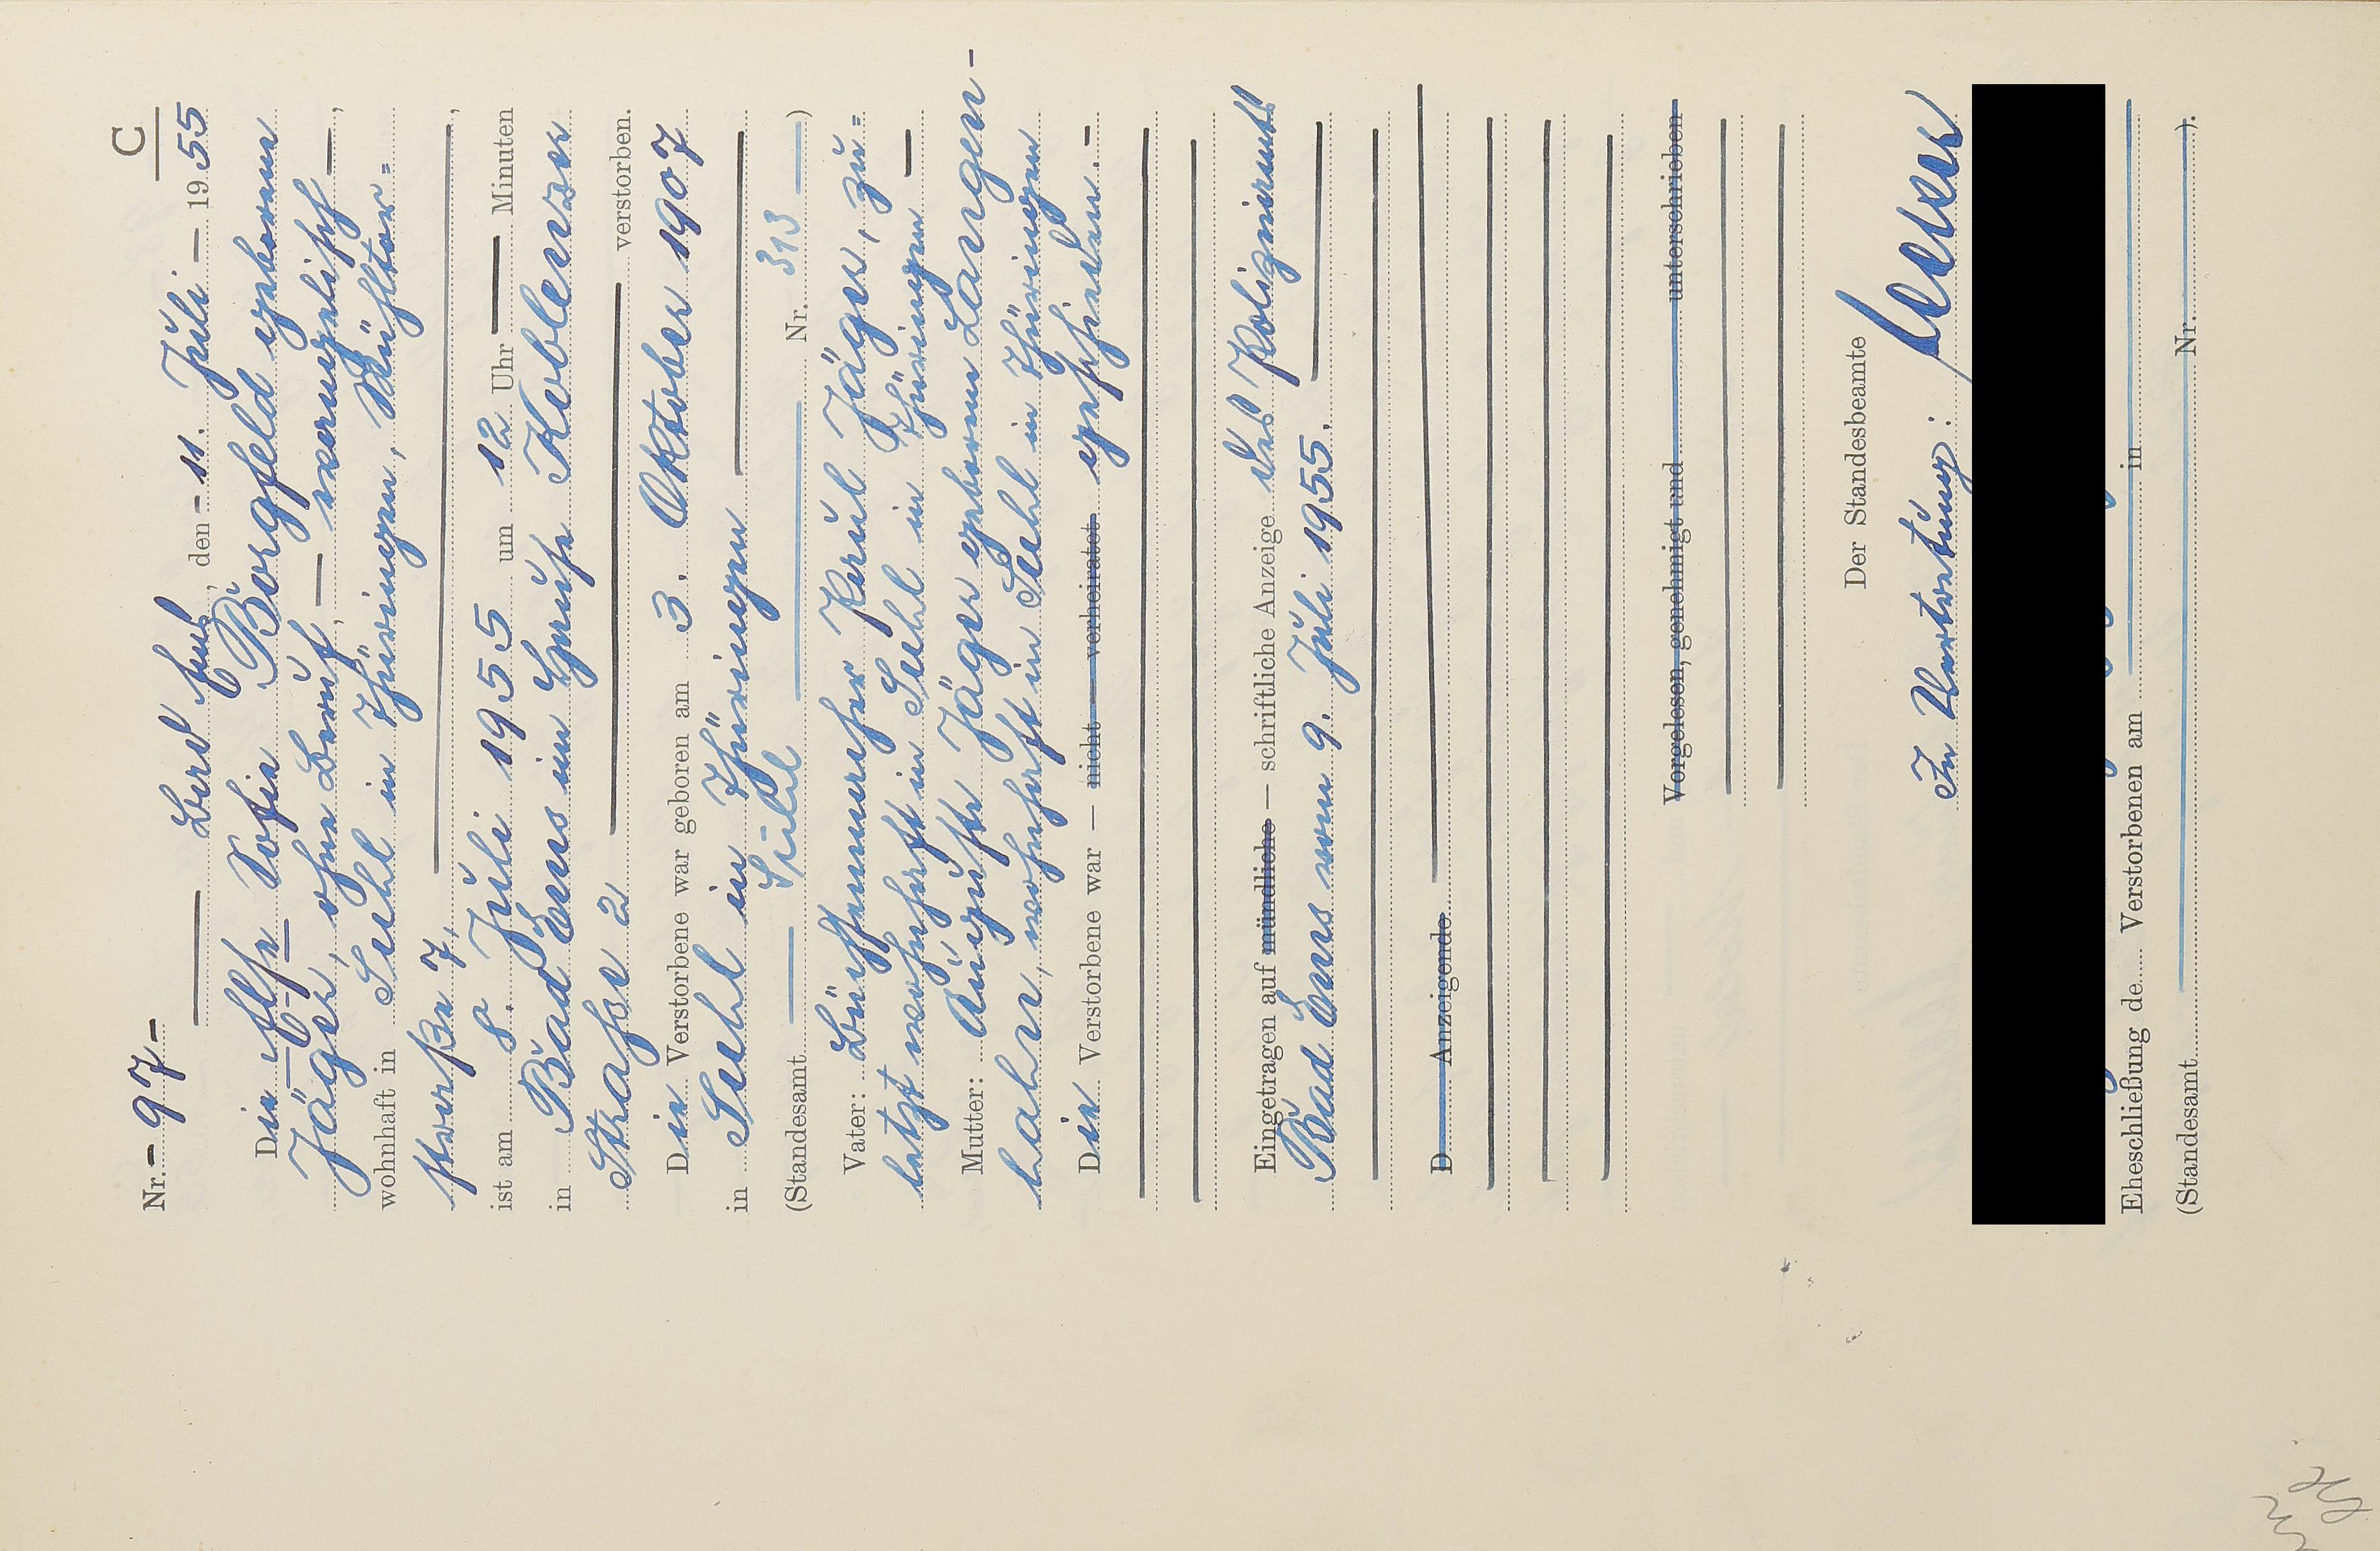 C
Nr. - 97 -
Bad Ems, den - 11. Juli - 1955
Die Else Sofie Borgfeld geborene
Jäger, ohne Beruf, - evangelisch -,
wohnhaft in Suhl in Thüringen, Mühltor=
straße 7,
ist am 8. Juli 1955 um 12 Uhr — Minuten
in Bad Ems im Hause Koblenzer
Straße 2 verstorben.
Die Verstorbene war geboren am 3. Oktober 1907
in Suhl in Thüringen
(Standesamt — Suhl — Nr. 313 —)
Vater: Büchsenmacher Karl Jäger, zu=
letzt wohnhaft in Suhl in Thüringen —
Mutter: Auguste Jäger geborene Langen-
hahn, wohnhaft in Suhl in Thüringen
Die Verstorbene war — nicht — verheiratet geschieden. -
Eingetragen auf mündliche — schriftliche Anzeige des Polizeiamts
Bad Ems vom 9. Juli 1955.
D Anzeigende
Vorgelesen, genehmigt und unterschrieben
Der Standesbeamte
In Vertretung:
Eheschließung de Verstorbenen am in
(Standesamt Nr. ).